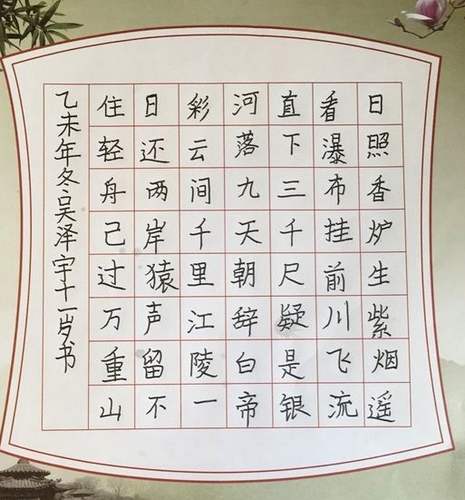 日照香炉生紫烟遥
看瀑布挂前川飞流
直下三千尺疑是银
河落九天朝辞白帝
彩云间千里江陵一
日还两岸猿声留不
住轻舟己过万重山
乙未年冬吴泽宇十一岁书